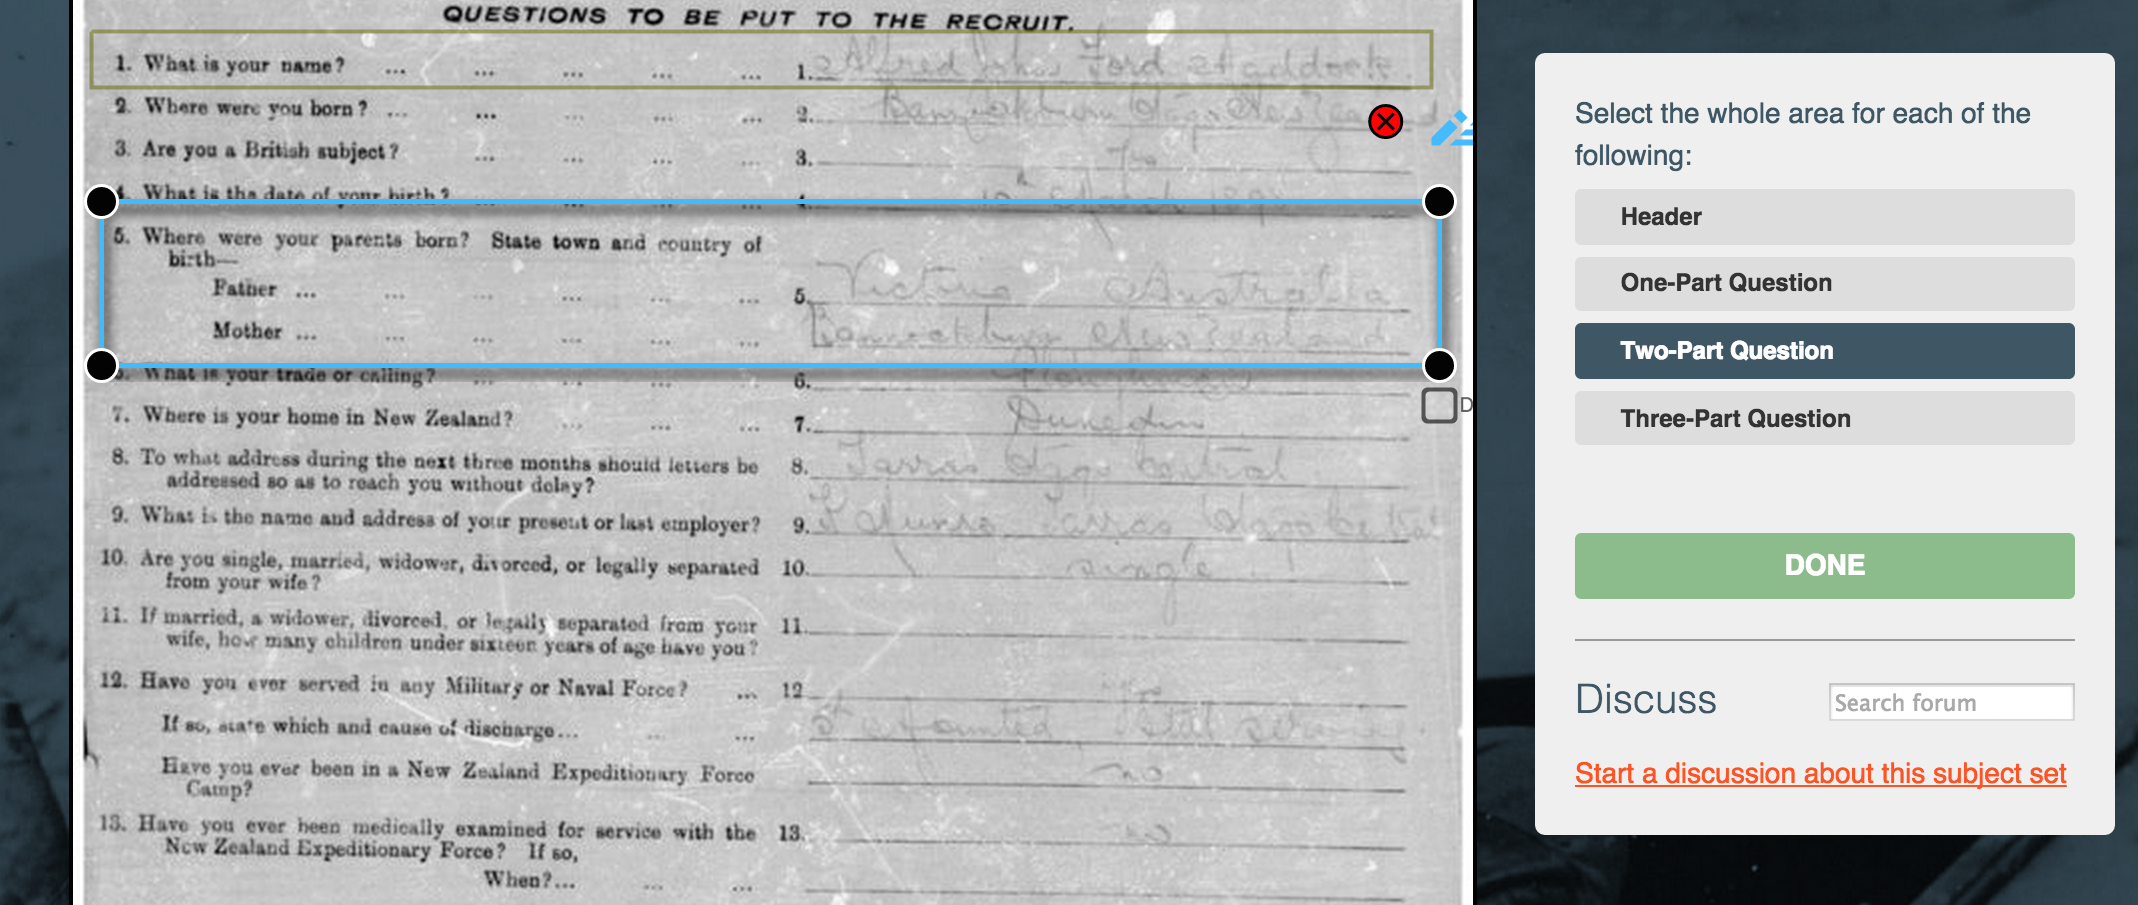 QUESTIONS TO BE PUT TO THE RECRUIT.
1. What is your name? ... ... ... ... ... 1. Alfred John Ford
2. Where were you born? ... ... ... ... ... 2.
3. Are you a British subject? ... ... ... ... 3.
4. What is the date of your birth? ... ... ... ... 4.
5. Where were your parents born? State town and country of
birth—
Father ... ... ... ... ... ... 5. Victoria Australia
Mother ... ... ... ... ... ... New Zealand
6. What is your trade or calling? ... ... ... 6. Ploughman
7. Where is your home in New Zealand? ... ... ... 7. Dunedin
8. To what address during the next three months should letters be 8. Tarras Otago Central
addressed so as to reach you without delay?
9. What is the name and address of your present or last employer? 9. Tarras Otago Central
10. Are you single, married, widower, divorced, or legally separated 10. single
from your wife?
11. If married, a widower, divorced, or legally separated from your 11.
wife, how many children under sixteen years of age have you?
12. Have you ever served in any Military or Naval Force? ... 12
If so, state which and cause of discharge... ... ...
Have you ever been in a New Zealand Expeditionary Force no
Camp?
13. Have you ever been medically examined for service with the 13. no
New Zealand Expeditionary Force? If so,
When?... ... ...
D
Select the whole area for each of the
following:
Header
One-Part Question
Two-Part Question
Three-Part Question
DONE
Discuss
Search forum
Start a discussion about this subject set